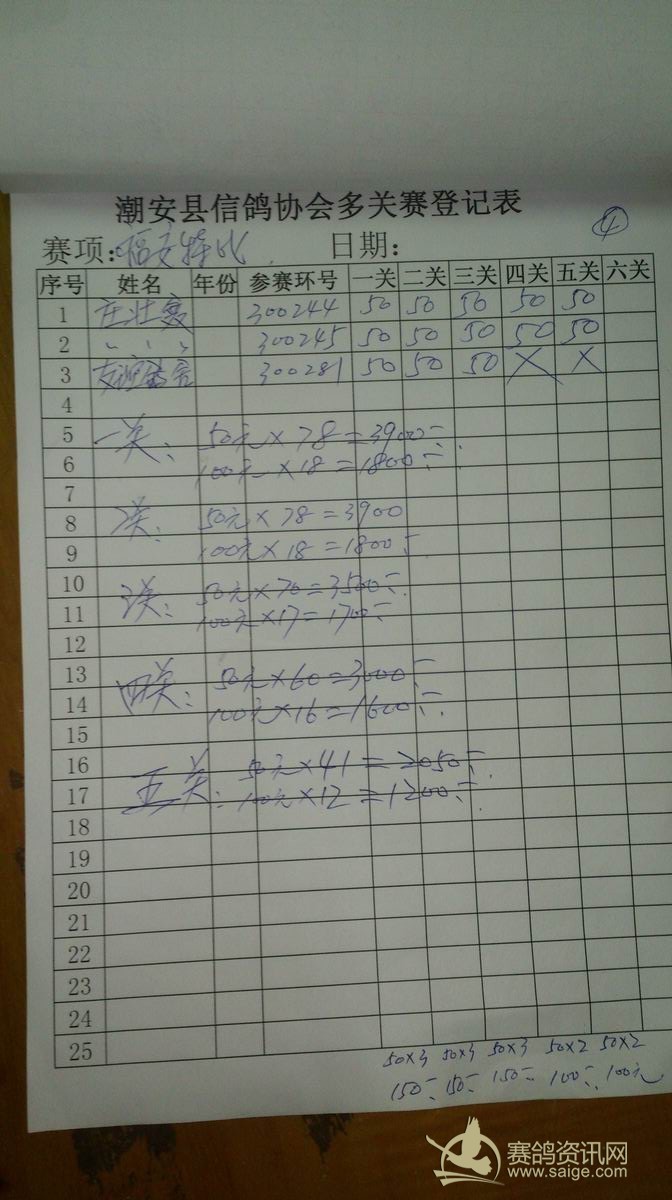 潮安县信鸽协会多关赛登记表
④
赛项: 日期:
序号 姓名 年份 参赛环号 一关 二关 三关 四关 五关 六关
1 300244 50 50 50 50 50
2 300245 50 50 50 50 50
3 300281 50 50 50 X X
4
5 一关: 50元×78=3900元
6 100元×18=1800元
7
8 二关: 50元×78=3900
9 100元×18=1800元
10 三关: 50元×70=3500元
11 100元×17=1700元
12
13 四关: 50元×60=3000元
14 100元×16=1600元
15
16 五关: 50元×41=2050元
17 100元×12=1200元
18
19
20
21
22
23
24
25
50×3 50×3 50×3 50×2 50×2
150元 150元 150元 100元 100元
赛鸽资讯网
www.saige.com